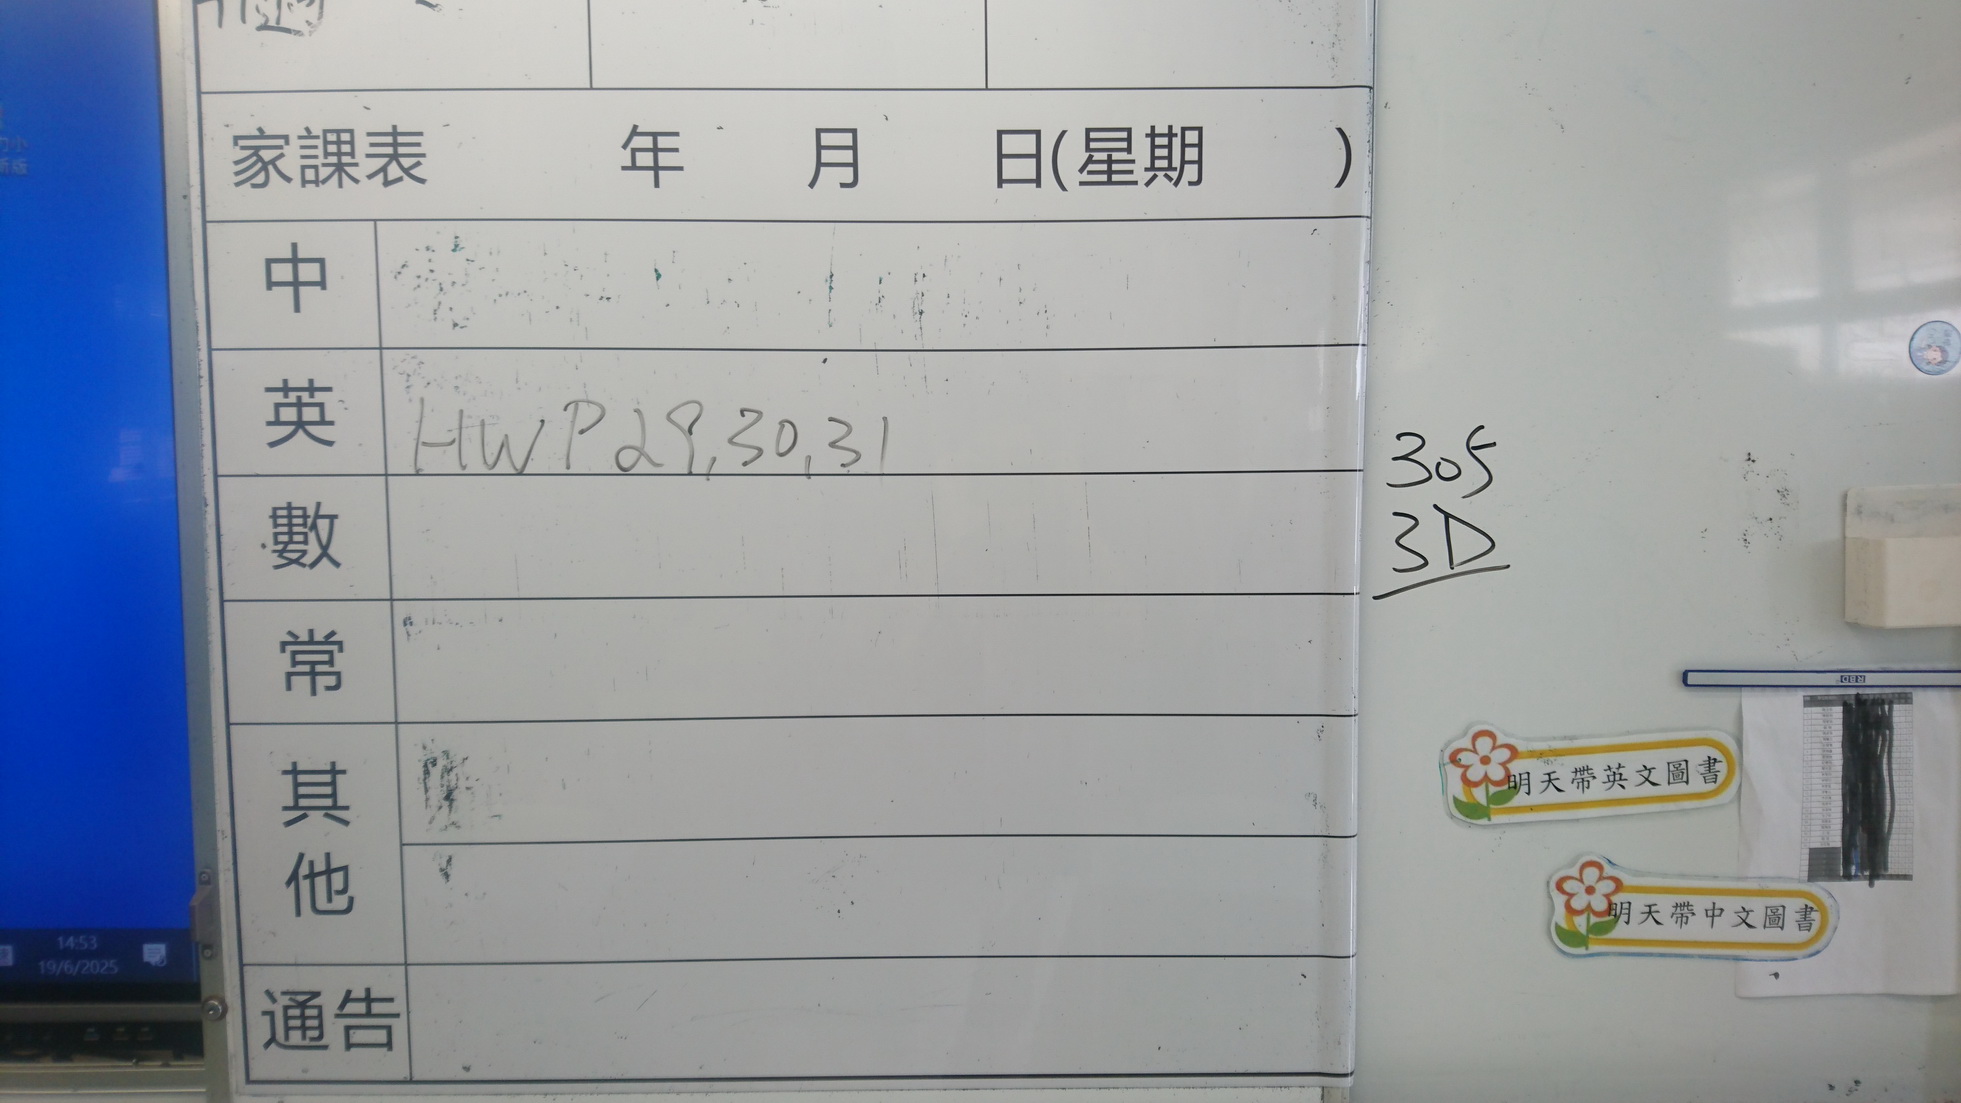 家課表 年 月 日(星期 )
中
英 HW P29,30,31
數
常
其他
通告
305
3D
明天帶英文圖書
明天帶中文圖書
14:53
19/6/2025